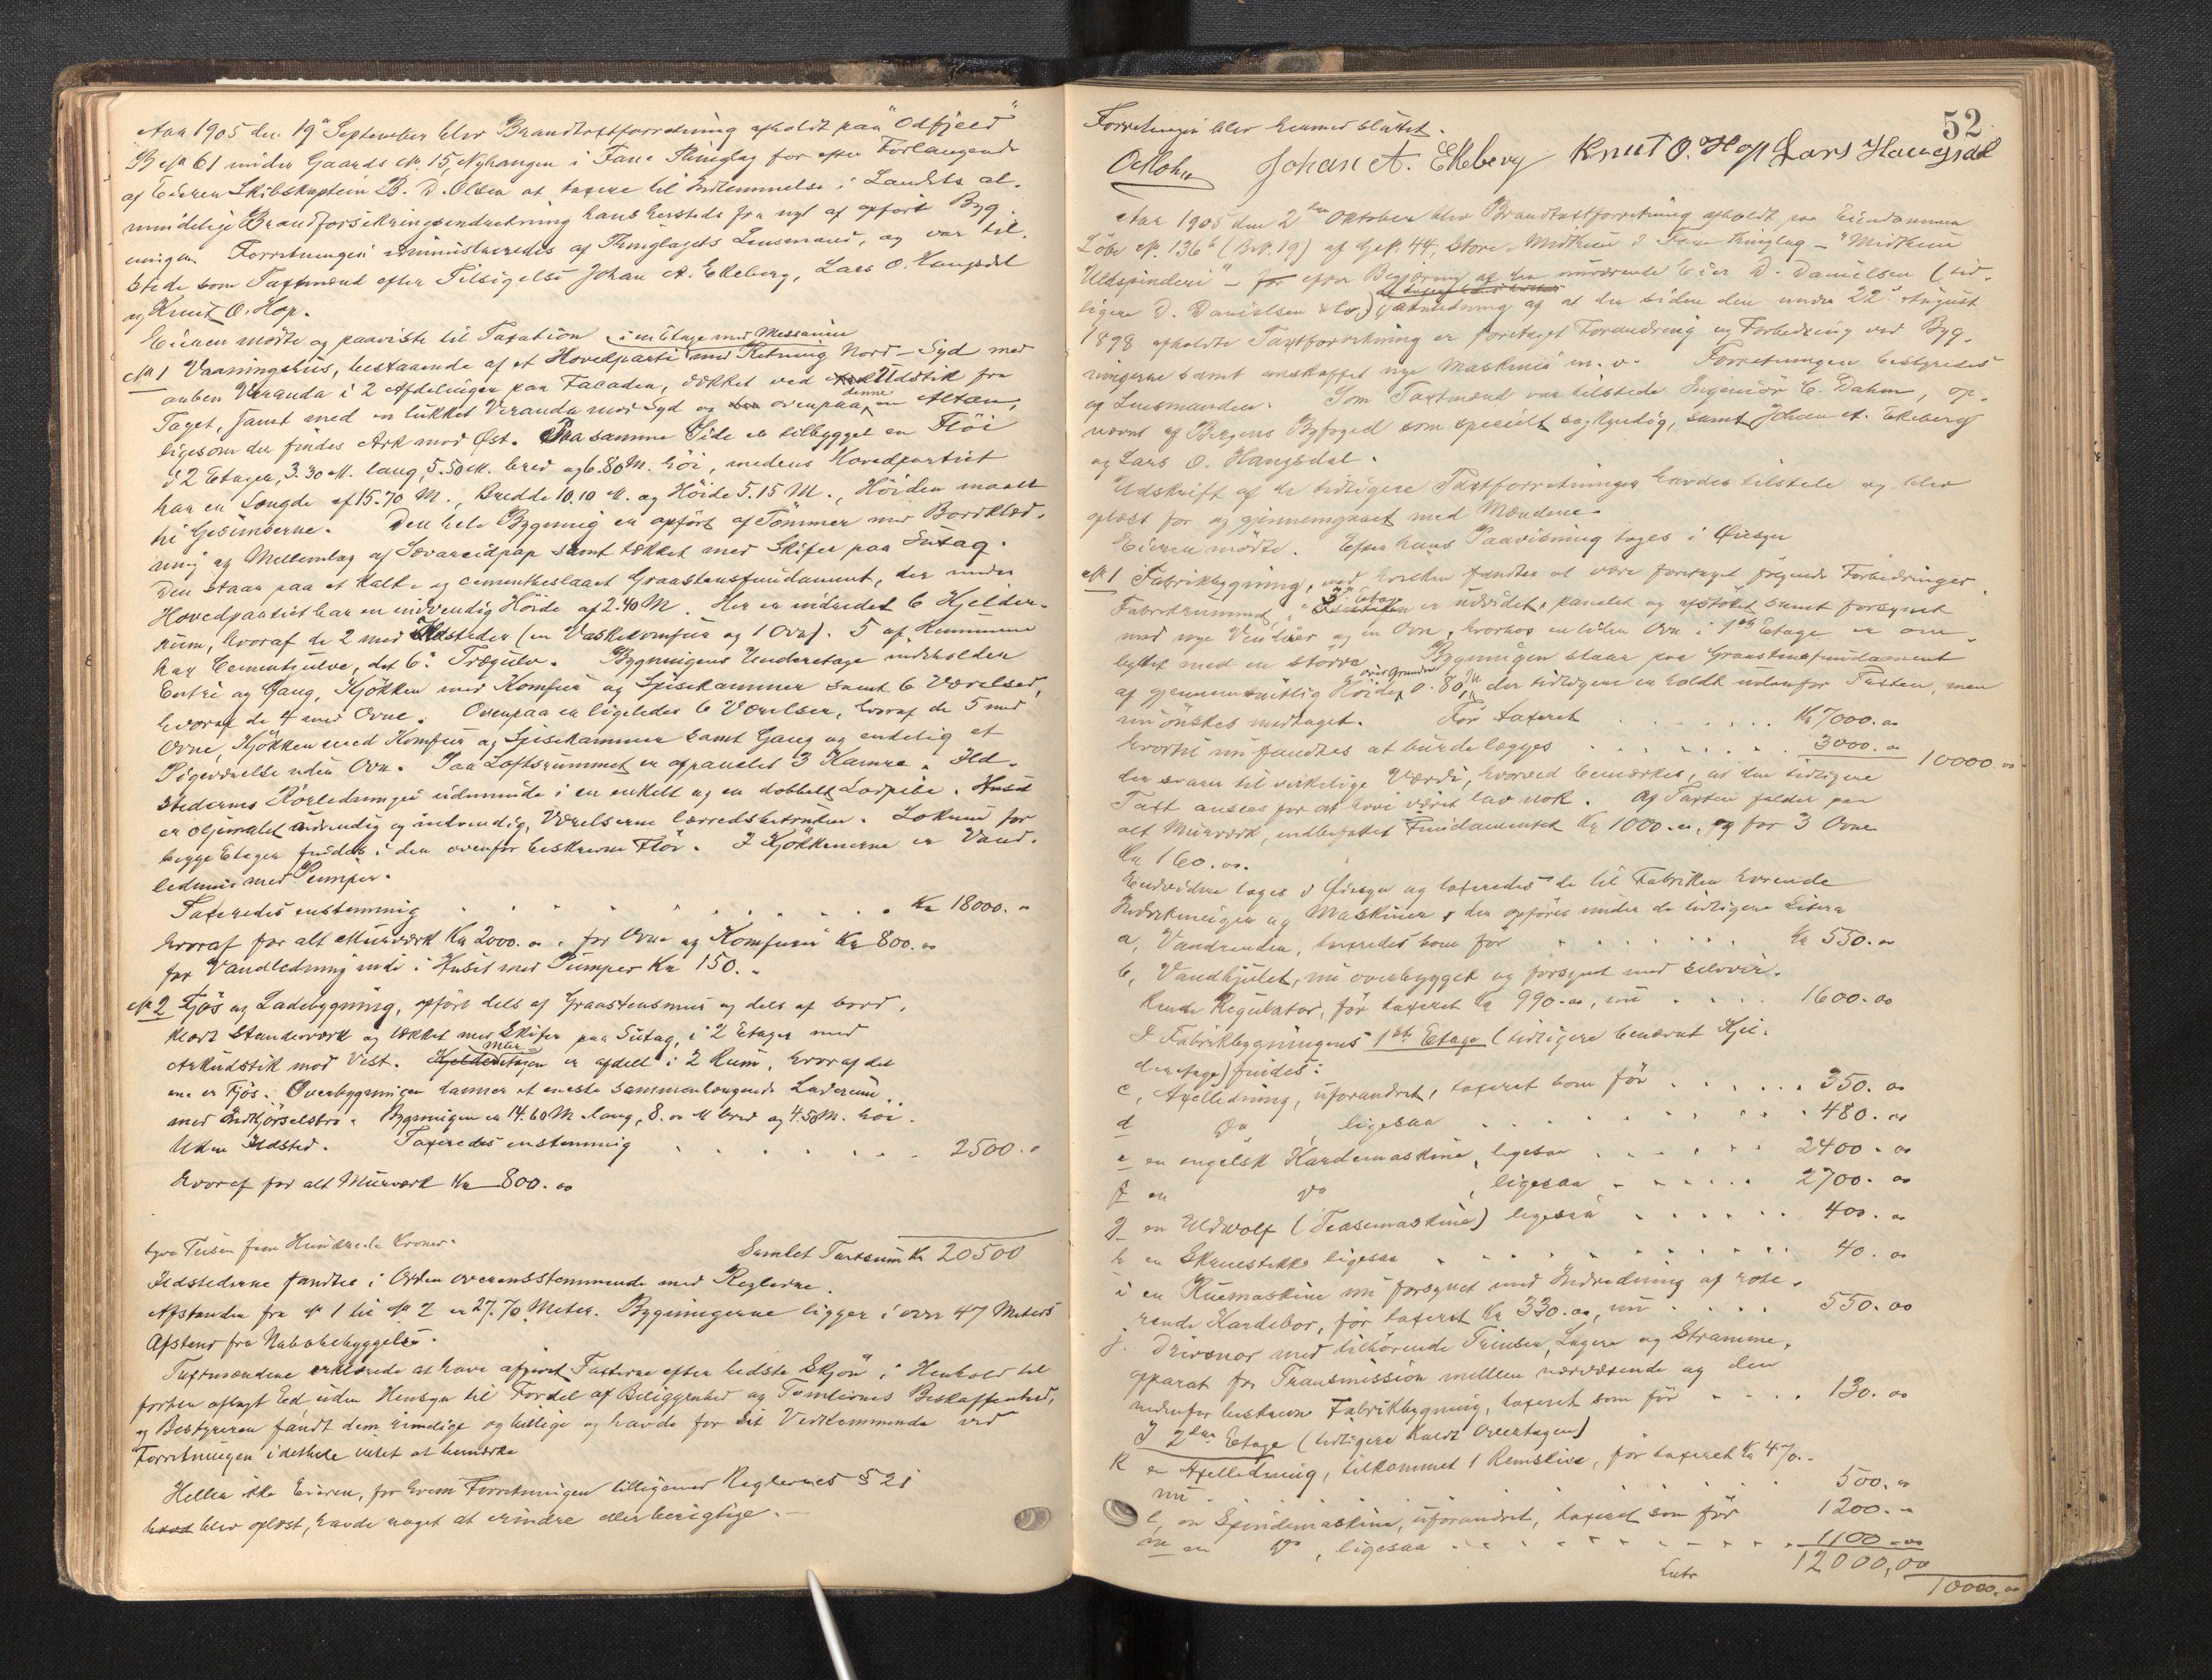 Aar 1905 den 19de September blev Brandtaxtforretning afholdt paa "Odfjeld"
B No 61 under Gaards No. 15, Nyhangen i Fane Thinglag for efter Forlangende
af Eieren Skibskaptein B. D. Olsen at taxere til Indlemmelse i Landets al-
mindelige Brandforsikringsindretning hans hersteds fra nyt af opført Byg-
ninger. Forretningen administreredes af Thinglagets Lensmand, og var til-
stede som Taxtmænd efter Tilsigelse Johan A. Ekeberg, Lars O. Haugsdal
og Knut O. Hop.
Eieren mødte og paaviste til Taxation
No 1 Vaaningshus, bestaaende af et Hovedparti i en Etage med Messanin med Retning Nord-Syd med
aaben Veranda i 2 Afdelinger paa Facaden, dækket ved Udstik fra
Taget, samt med en lukket Veranda mod Syd og ovenpaa denne en Altan,
ligesom der findes Ark mod Øst. Paa samme Side er tilbygget en Fløi
i 2 Etager, 3.30 M. lang, 5.50 M. bred og 6.80 M. høi, medens Hovedpartiet
har en Længde af 15.70 M., Bredde 10.10 M. og Høide 5.15 M., Høiden maalt
til Gesimserne. Den hele Bygning er opført af Tømmer med Bordklæd-
ning og Mellemlag af Sævareidpap samt tækket med Skifer paa Sutag.
Den staar paa et kalk- og cementbeslaaet Graastensfundament, der under
Hovedpartiet har en indvendig Høide af 2.40 M. Her er indredet 6 Kjelder-
rum, hvoraf de 2 med Ildsteder (en Vaskekomfur og 1 Ovn). 5 af Rummene
har Cementgulve, det 6te Trægulv. Bygningens Underetage indeholder
Entré og Gang, Kjøkken med Komfur og Spisekammer samt 6 Værelser,
hvoraf de 4 med Ovne. Ovenpaa er ligeledes 6 Værelser, hvoraf de 5 med
Ovne, Kjøkken med Komfur og Spisekammer samt Gang og endelig et
Pigeværelse uden Ovn. Paa Loftsrummet er afpanelet 3 Kamre. Ild-
stedernes Rørledninger udmunde i en enkelt og en dobbelt Lodpibe. Huset
er oljemalet udvendig og indvendig, Værelserne lærredsbetrukne. Lokum for
begge Etager findes i den ovenfor beskrevne Fløi. I Kjøkkenerne er Vand-
ledning med Pumper.
Taxeredes enstemmig . . . . . . Kr 18000. "
hvoraf for alt Murværk Kr 2000.00, for Ovne og Komfurer Kr 800.00
for Vandledning inde i Huset med Pumper Kr 150.-
No 2 Fjøs og Ladebygning, opført dels af Graastensmur og dels af bord-
klædt Standerværk og tækket med Skifer paa Sutag, i 2 Etager med
Arkudstik mod Vest. Muretagen er afdelt i 2 Rum, hvoraf det
ene er Fjøs. Overbygningen danner et eneste sammenhængende Laderum
med Indkjørselsbro. Bygningen er 14.60 M lang, 8.00 M bred og 4.50 M. høi.
Uden Ildsted. Taxeredes enstemmig . . . . . . 2500. "
hvoraf for alt Murværk Kr 800.00
tyve Tusen fem Hundrede Kroner.
Samlet Taxtsum Kr 20500
Ildstederne fandtes i Orden overensstemmende med Reglerne.
Afstanden fra No 1 til No 2 er 27.70 Meter. Bygningerne ligger i over 47 Meters
Afstand fra Nabobebyggelse.
Taxtmændene erklærede at have afgivet Taxterne efter bedste Skjøn i Henhold til
forhen aflagt Ed, uden Hensyn til Fordel af Beliggenhed og Tomternes Beskaffenhed,
og Bestyreren fandt dem rimelige og billige og havde for sit Vedkommende ved
Forretningen idethele intet at bemærke
Heller ikke Eieren, for hvem Forretningen tilligemed Reglernes § 21
blev oplæst, havde noget at erindre eller berigtige.-
52
Forretningen blev hermed sluttet.
Johan A. Ekeberg Knut O. Hop Lars Haugsdal
Aar 1905 den 2den Oktober blev Brandtaxtforretning afholdt paa Eiendommen
Løbe No. 136b (Br No. 19) af G No. 44, Store Midtun i Fane Thinglag - "Midtun
Uldspinderi" - efter Begjæring af nuværende Eier D. Danielsen (tid-
ligere D. Danielsen & Co.) i Anledning af at der siden den under 22de August
1898 afholdte Taxtforretning er foretaget Forandring og Forbedring ved Byg-
ningerne samt anskaffet nye Maskiner m.v. Forretningen bestyredes
og Lensmanden. Som Taxtmænd var tilstede Ingeniør C. Dahm, op-
nævnt af Bergens Byfoged som specielt sagkyndig, samt Johan A. Ekeberg
og Lars O. Haugsdal.
Udskrift af de tidligere Taxtforretninger havdes tilstede og blev
oplæst for og gjennemgaaet med Mændene.
Eieren mødte. Efter hans Paavisning toges i Øiesyn
No 1 Fabrikbygning, ved hvilken fandtes at være foretaget følgende Forbedringer.
Fabrikrummet i 3die Etage er udvidet, panelet og afstøtet samt forsynet
med nye Vinduer og en Ovn, hvorhos en liden Ovn i 1ste Etage er om-
byttet med en større. Bygningen staar paa Graastensfundament
af gjennemsnitlig Høide over Grunden 0.80 M, der tidligere er holdt udenfor Taxten, men
nu ønskes medtaget. Før taxeret . . . . . . Kr 7000.00
hvortil nu fandtes at burde lægges . . . . . . 3000.00 10000.00
der svarer til virkelige Værdi, hvorved bemærkes, at den tidligere
Taxt ansees for at have været lav nok. Af Taxten falder paa
alt Murværk, indbefattet Fundamentet Kr 1000.00, og for 3 Ovne
Kr 160.00.
Endvidere toges i Øiesyn og taxeredes de til Fabriken hørende
Indretninger og Maskiner, der opføres under de tidligere Litera
a, Vandrenden, taxeredes som før . . . . . . Kr 550.00
b, Vandhjulet, nu overbygget og forsynet med selvvir-
kende Regulator, før taxeret Kr 990.00, nu . . . . 1600.00
I Fabrikbygningens 1ste Etage (tidligere benævnt Kjel-
deretage) findes:
c, Axelledning, uforandret, taxeret som før . . . . . . 350.00
d Do ligesaa . . . . . . 480.00
e en engelsk Kardemaskine, ligesaa . . . . . . 2400.00
f en Do, ligesaa . . . . . . 2700.00
g en Uldwolf (Teasemaskine) ligesaa . . . . . . 400.00
h en Skruestikke ligesaa . . . . . . 40.00
i en Ruemaskine nu forsynet med Indredning af rote-
rende Kardebor, før taxeret Kr 330.00, nu . . . . 550.00
j. Drivsnor med tilhørende Trinser, Lagere og Stramme-
apparat for Transmission mellem nærværende og den
nedenfor beskrevne Fabrikbygning, taxeret som før . . . . 130.00
I 2den Etage (tidligere kaldt Overetagen)
k en Axelledning, tilkommet 1 Remskive, før taxeret Kr 470.-
nu . . . . . . 500.00
l, en Spindemaskine, uforandret, taxeret som før 1200.-
m en Do, ligesaa . . . . . . 1100.00
Latr 12000,00
10000.00